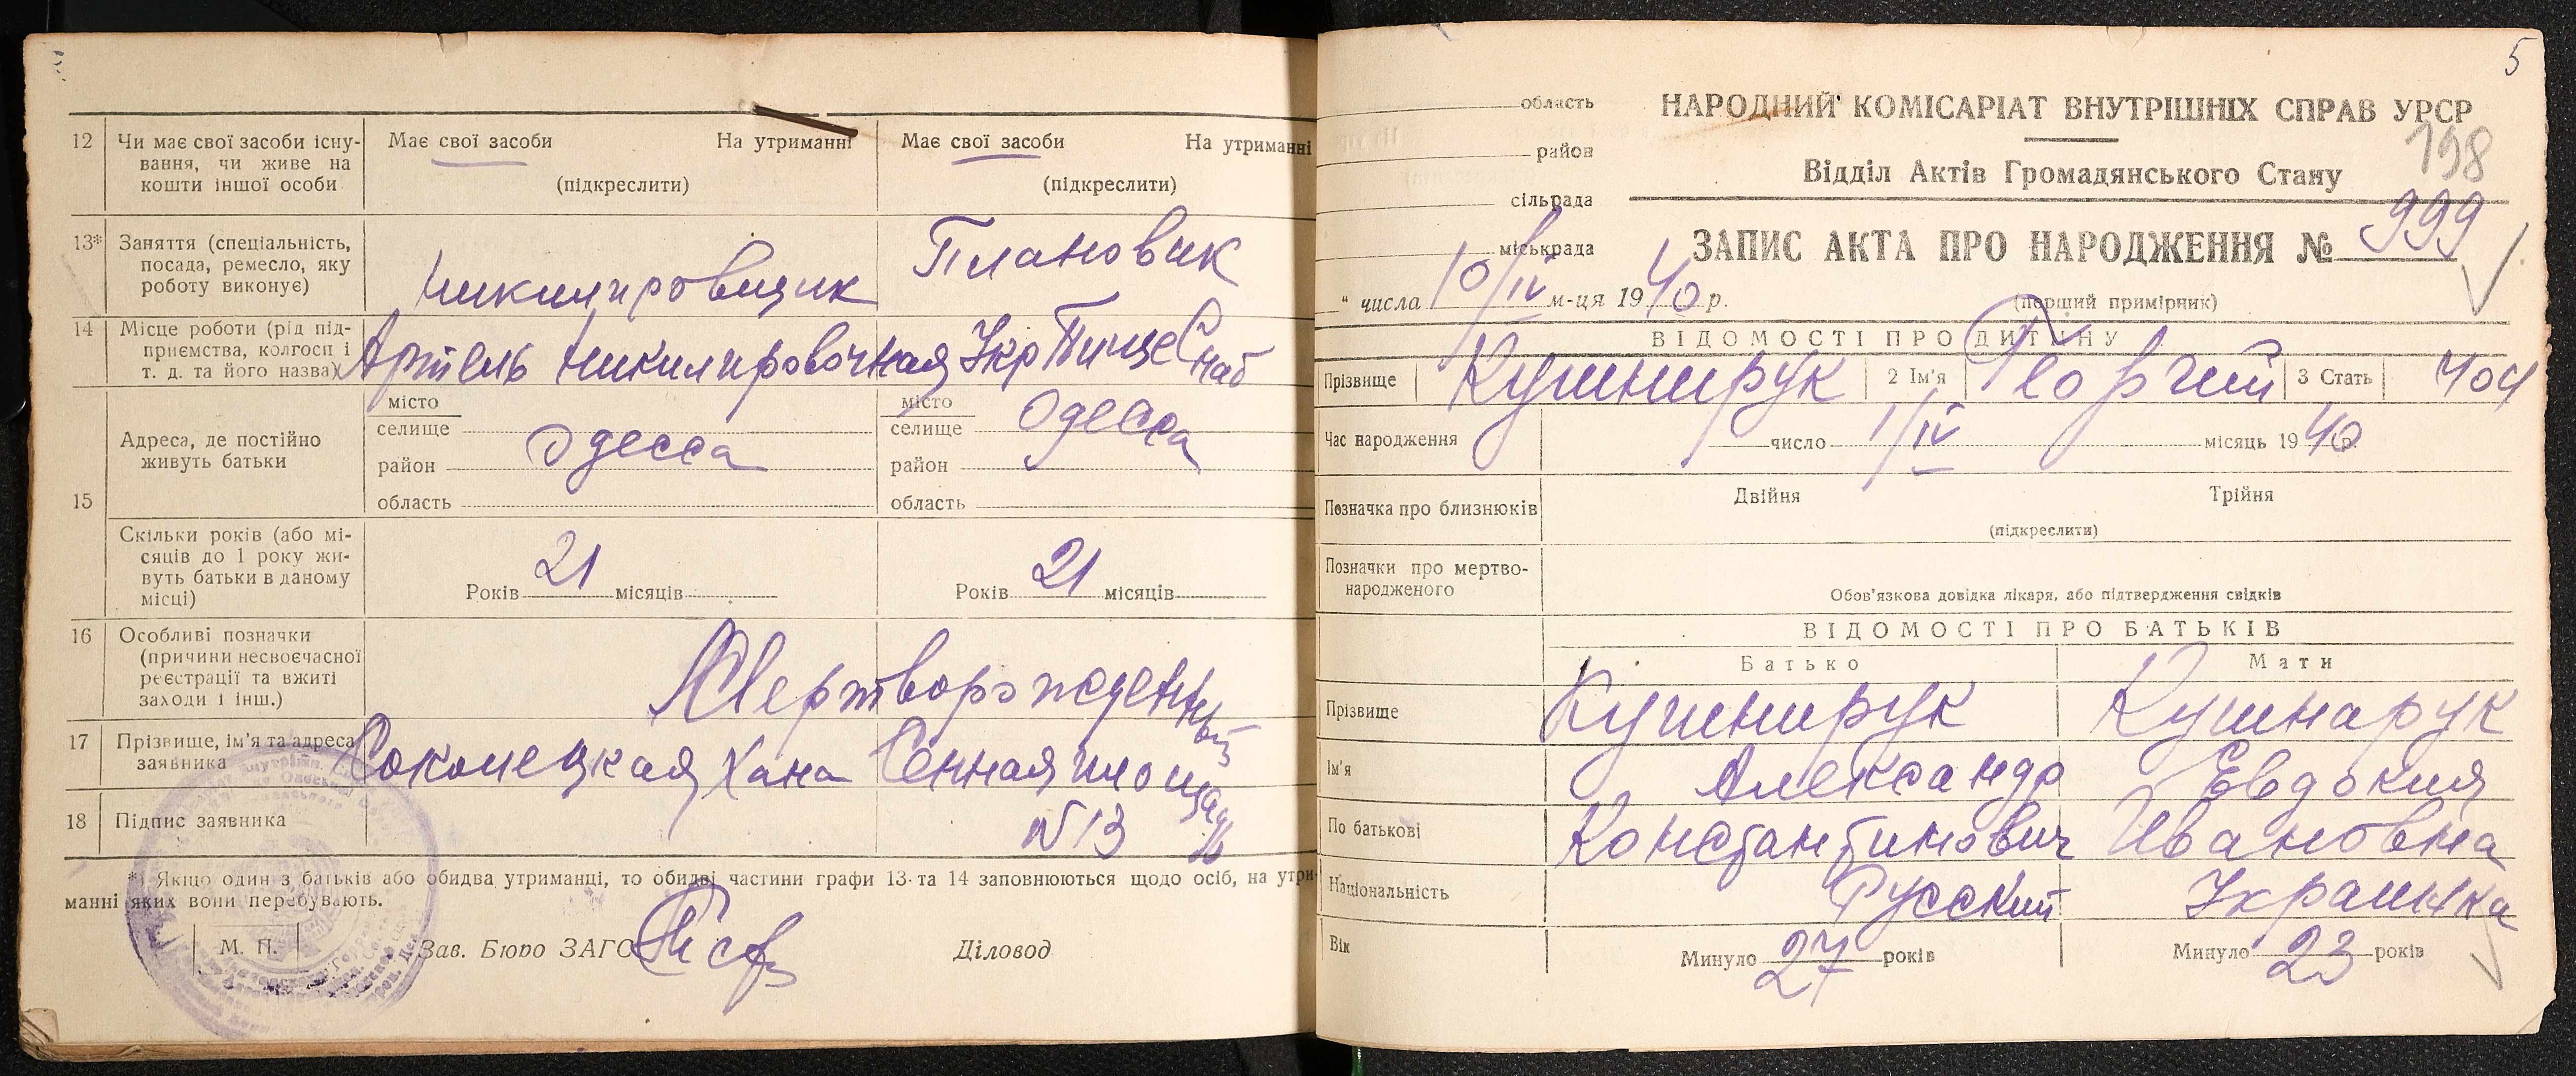 12 Чи має свої засоби існу-
вання, чи живе на
кошти іншої особи
Має свої засоби На утриманні
(підкреслити)
Має свої засоби На утриманні
(підкреслити)
13* Заняття (спеціальність,
посада, ремесло, яку
роботу виконує)
Никилировщик
Плановик
14 Місце роботи (рід під-
приємства, колгосп і
т. д. та його назва)
Артель Никилировочная
УкрПищеСнаб
15 Адреса, де постійно
живуть батьки
місто
селище
район
область
Одесса
місто
селище
район
область
Одесса
Скільки років (або мі-
сяців до 1 року жи-
вуть батьки в даному
місці)
Років 21 місяців
Років 21 місяців
16 Особливі позначки
(причини несвоєчасної
реєстрації та вжиті
заходи і інш.)
Мертворожденный
17 Прізвище, ім'я та адреса
заявника
Хана Сенная площадь
N 13
18 Підпис заявника
*) Якщо один з батьків або обидва утриманці, то обидві частини графи 13 та 14 заповнюються щодо осіб, на утри-
манні яких вони перебувають.
М. П. Зав. Бюро ЗАГС Діловод
5
область
район
сільрада
міськрада
" числа 10/IV м-ця 1940 р.
НАРОДНИЙ КОМІСАРІАТ ВНУТРІШНІХ СПРАВ УРСР
198
Відділ Актів Громадянського Стану
ЗАПИС АКТА ПРО НАРОДЖЕННЯ № 999
(перший примірник)
ВІДОМОСТІ ПРО ДИТИНУ
Прізвище Кушнирук 2 Ім'я Георгий 3 Стать чол
Час народження число 1/IV місяць 1940 р.
Позначка про близнюків Двійня Трійня
(підкреслити)
Позначки про мертво-
народженого
Обов'язкова довідка лікаря, або підтвердження свідків
ВІДОМОСТІ ПРО БАТЬКІВ
Батько Мати
Прізвище Кушнирук Кушнарук
Ім'я Александр Евдокия
По батькові Константинович Ивановна
Національність Русский Украинка
Вік Минуло 27 років Минуло 23 років